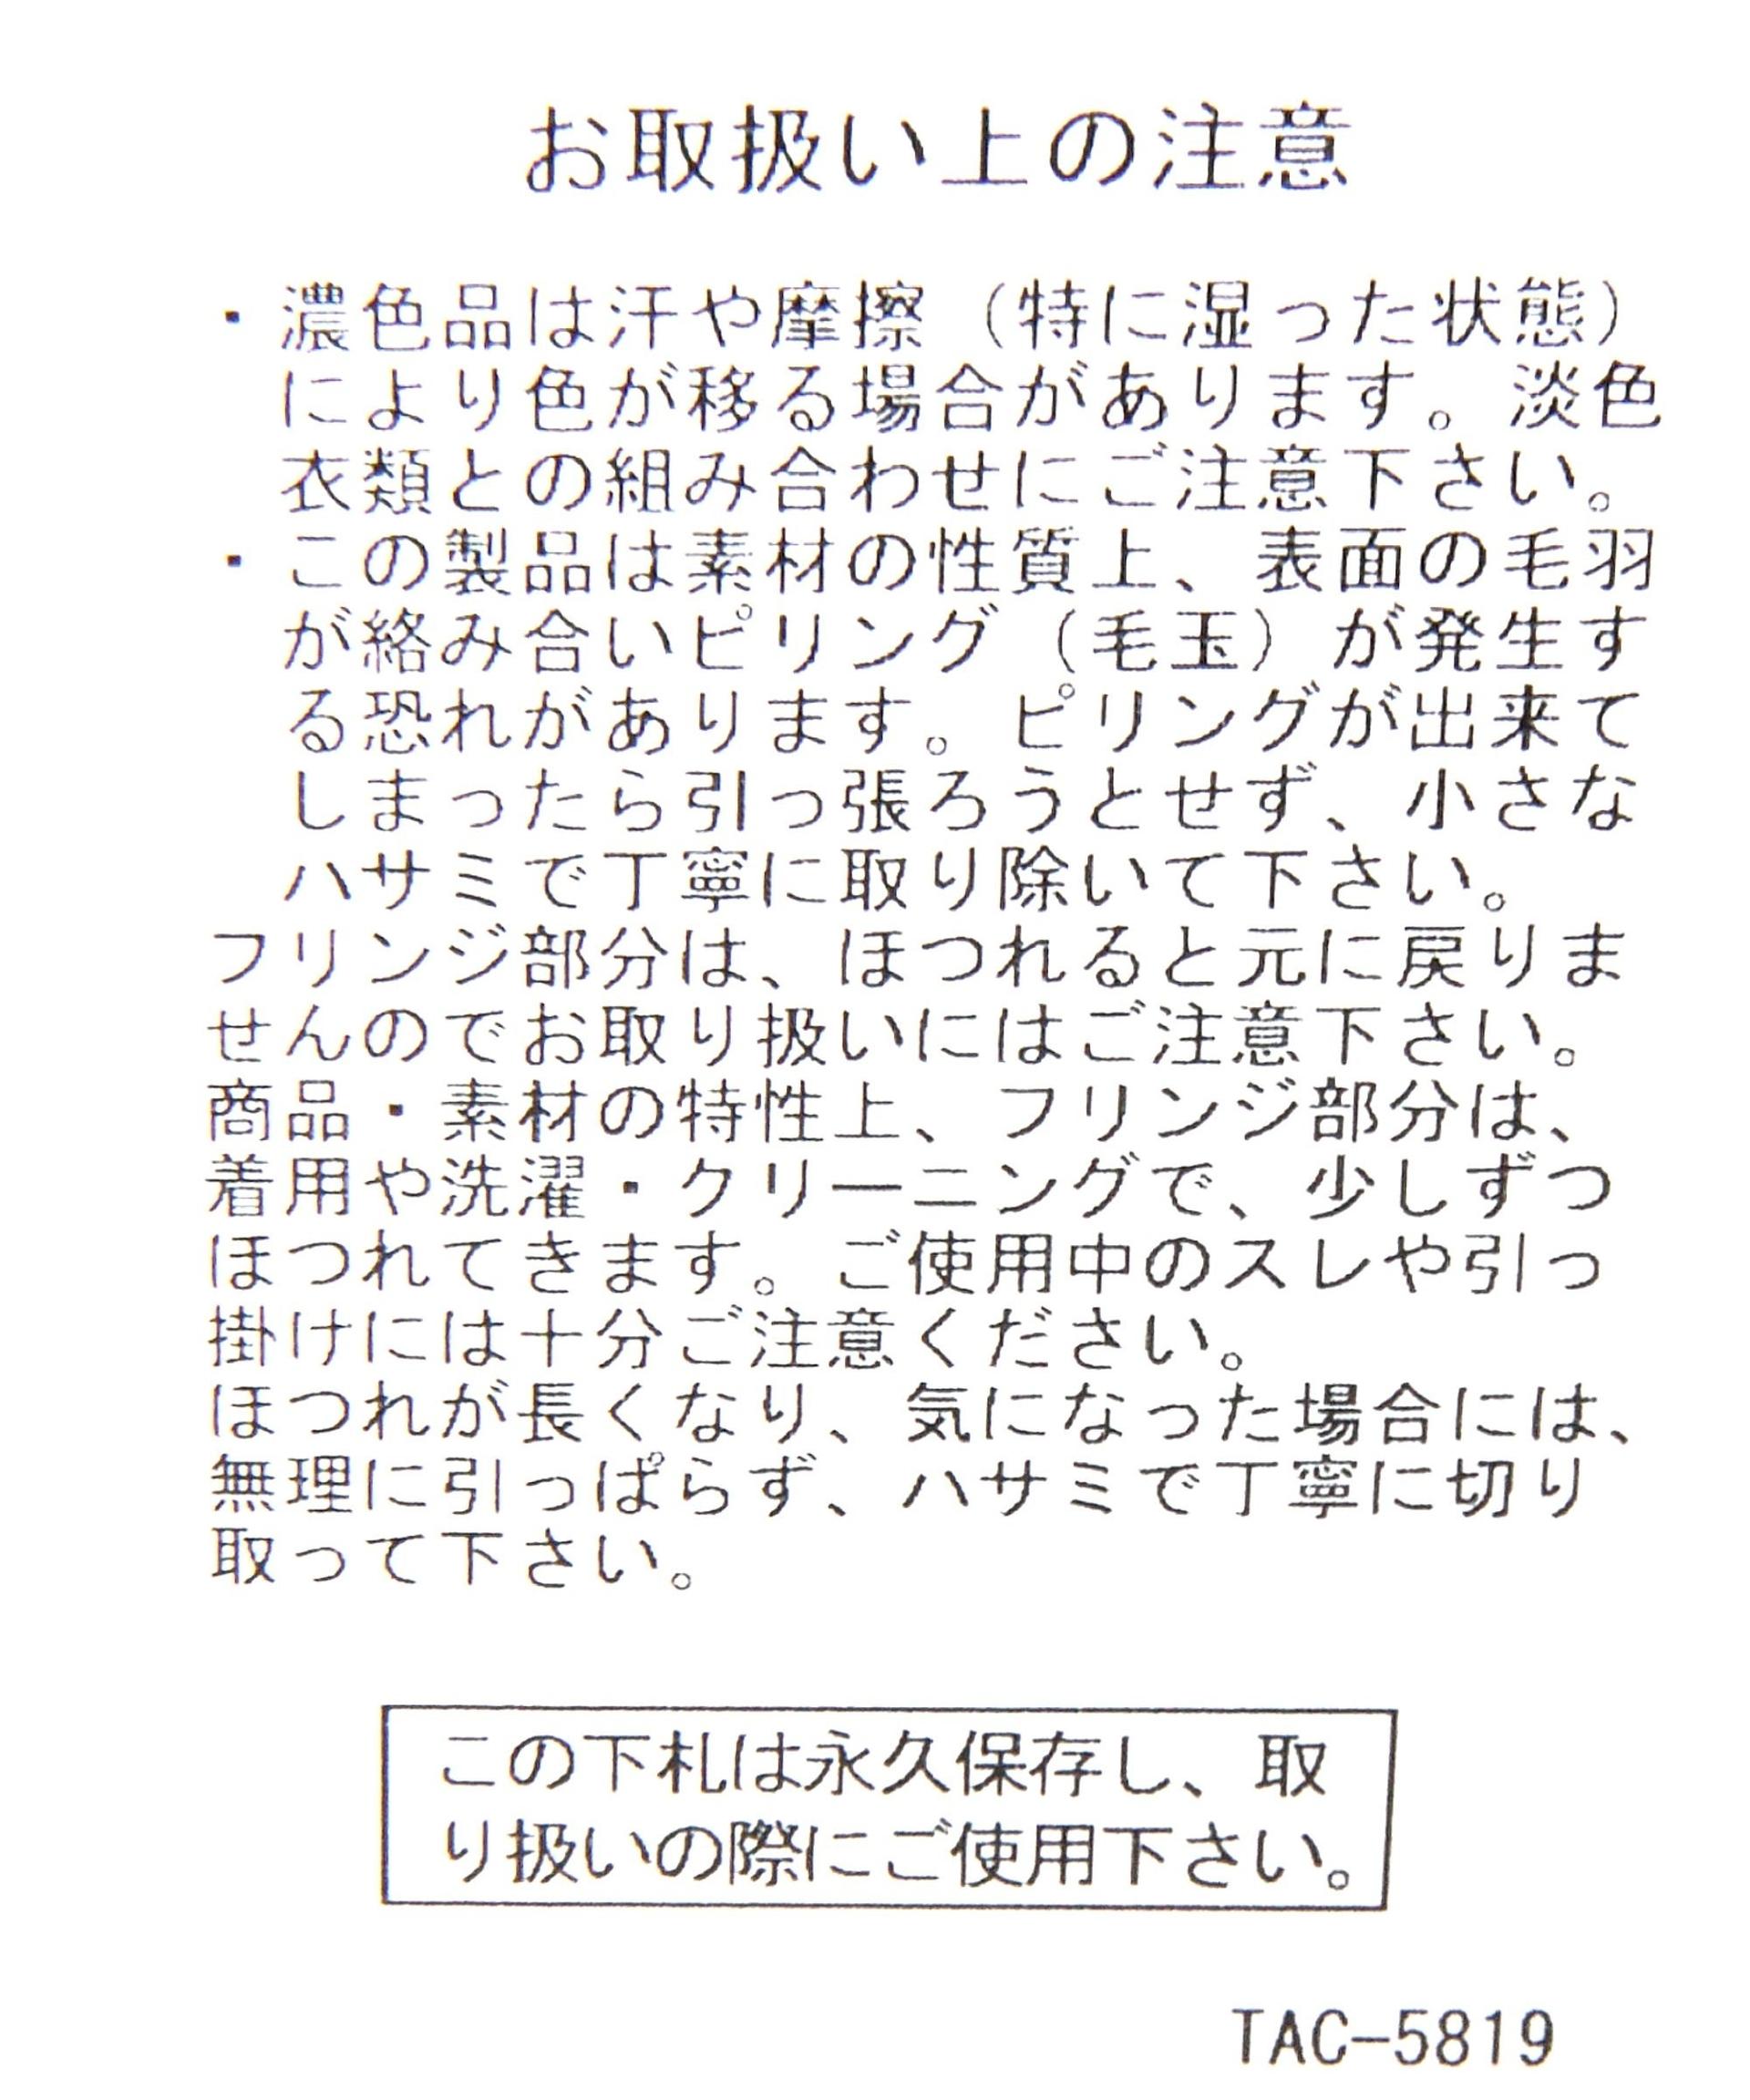 お取扱い上の注意
・濃色品は汗や摩擦（特に湿った状態）
により色が移る場合があります。淡色
衣類との組み合わせにご注意下さい。
・この製品は素材の性質上、表面の毛羽
が絡み合いピリング（毛玉）が発生す
る恐れがあります。ピリングが出来て
しまったら引っ張ろうとせず、小さな
ハサミで丁寧に取り除いて下さい。
フリンジ部分は、ほつれると元に戻りま
せんのでお取り扱いにはご注意下さい。
商品・素材の特性上、フリンジ部分は、
着用や洗濯・クリーニングで、少しずつ
ほつれてきます。ご使用中のスレや引っ
掛けには十分ご注意ください。
ほつれが長くなり、気になった場合には、
無理に引っぱらず、ハサミで丁寧に切り
取って下さい。
この下札は永久保存し、取
り扱いの際にご使用下さい。
TAC-5819